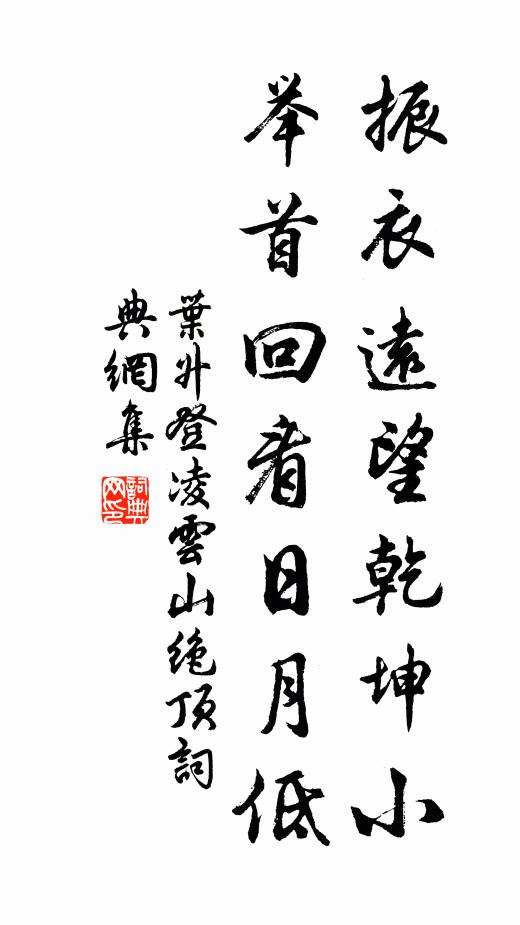 振衣遠望乾坤小
举首回看日月低
葉外登凌雲山绝頂詞
典網集
詞典网印